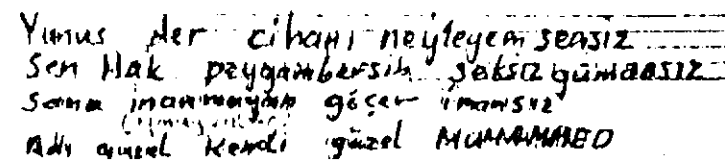 Yunus der cihanı neyleyem sensiz
Sen Hak peygambersin şeksiz gümansız
Sana inanmayan göçer imansız
(Uymayanlar)
Adı güzel kendi güzel MUHAMMED